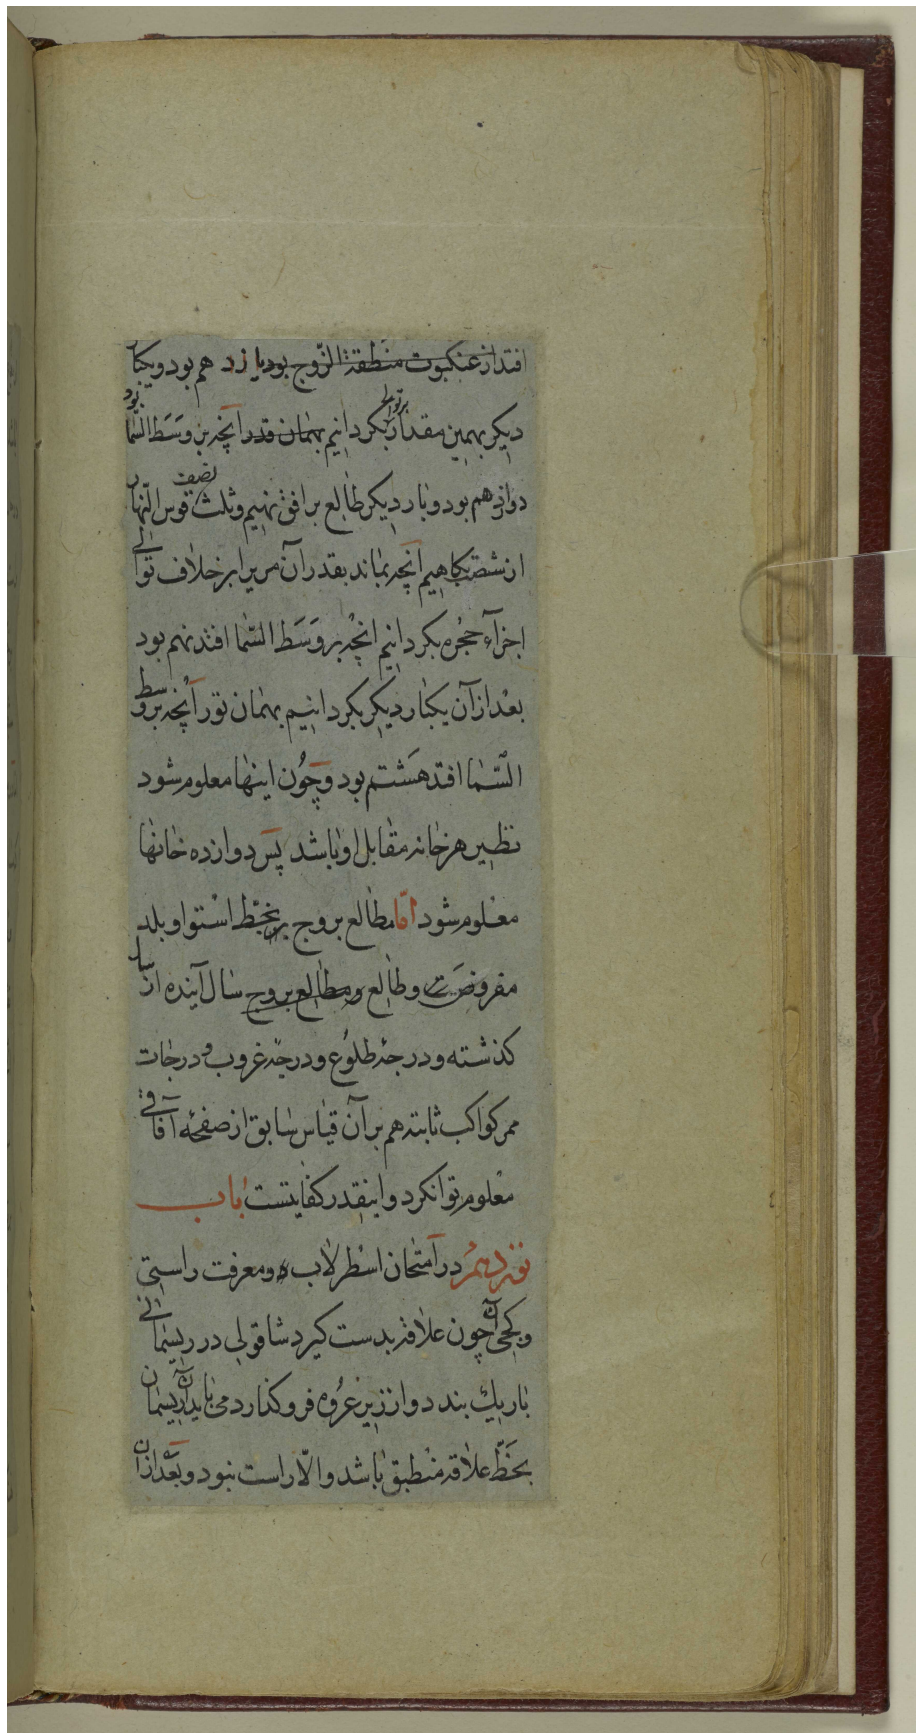 افتد از عنکبوت منطقة البروج بود یازدهم بود و یکبار
دیکر بهمین مقدار بر توالی بکردانیم بهمان قدر آنچه بر وسط السما بود
دوازدهم بود و بار دیکر طالع بر افق نهیم و ثلث نصف قوس النهار
از شصت بکاهیم آنچه بماند بقدر آن مری را بر خلاف توالی
اجزآء حجره بکردانیم انچه بر وسط السما افتد نهم بود
بعد از آن یکبار دیکر بکردانیم بهمان قدر آنچه بر وسط
السما افتد هشتم بود و چون اینها معلوم شود
نظیر هر خانه مقابل او باشد پس دوازده خانها
معلوم شود اما مطالع بروج بخط استوا و بلد
مفروضت و طالع و مطالع بروج سال آینده از سال
کذشته و درجه طلوع و درجه غروب و درجات
ممر کواکب ثابته هم بر آن قیاس سابق از صفحه آفاقی
معلوم توان کرد و اینقدر کفایتست باب
نوزدهم در آمتحان اسطرلاب و معرفت راستی
و کجی آن چون علاقه بدست کیرد شاقولی در ریسمانی
باریك بندد و از زیر عروه فرو کذارد می باید که آن ریسمان
بخط علاقه منطبق باشد و الا راست نبود و بعد از آن